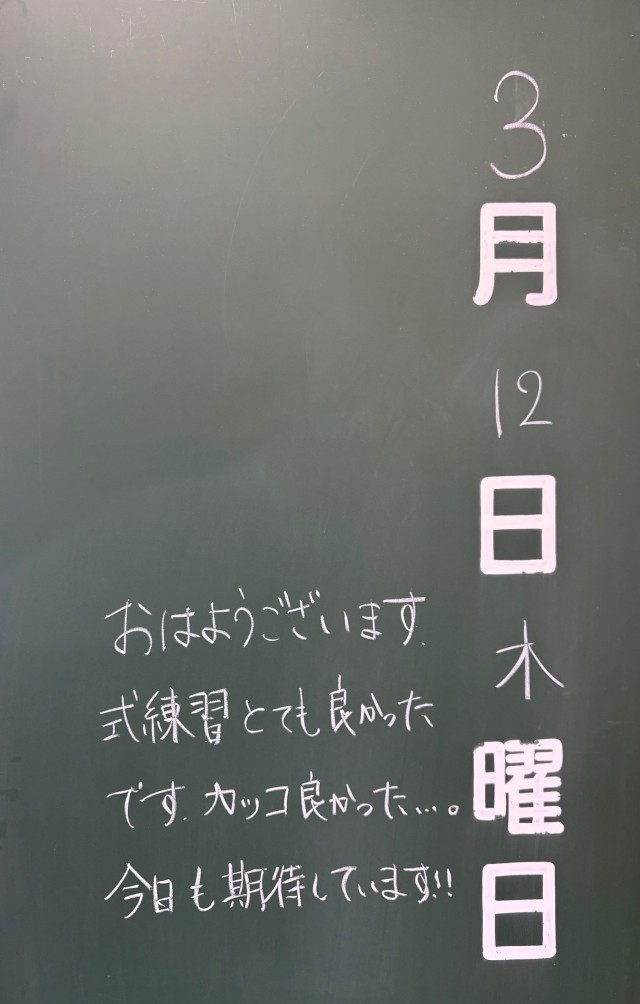 3月12日木曜日
おはようございます.
式練習とても良かった
です.カッコ良かった…。
今日も期待しています!!